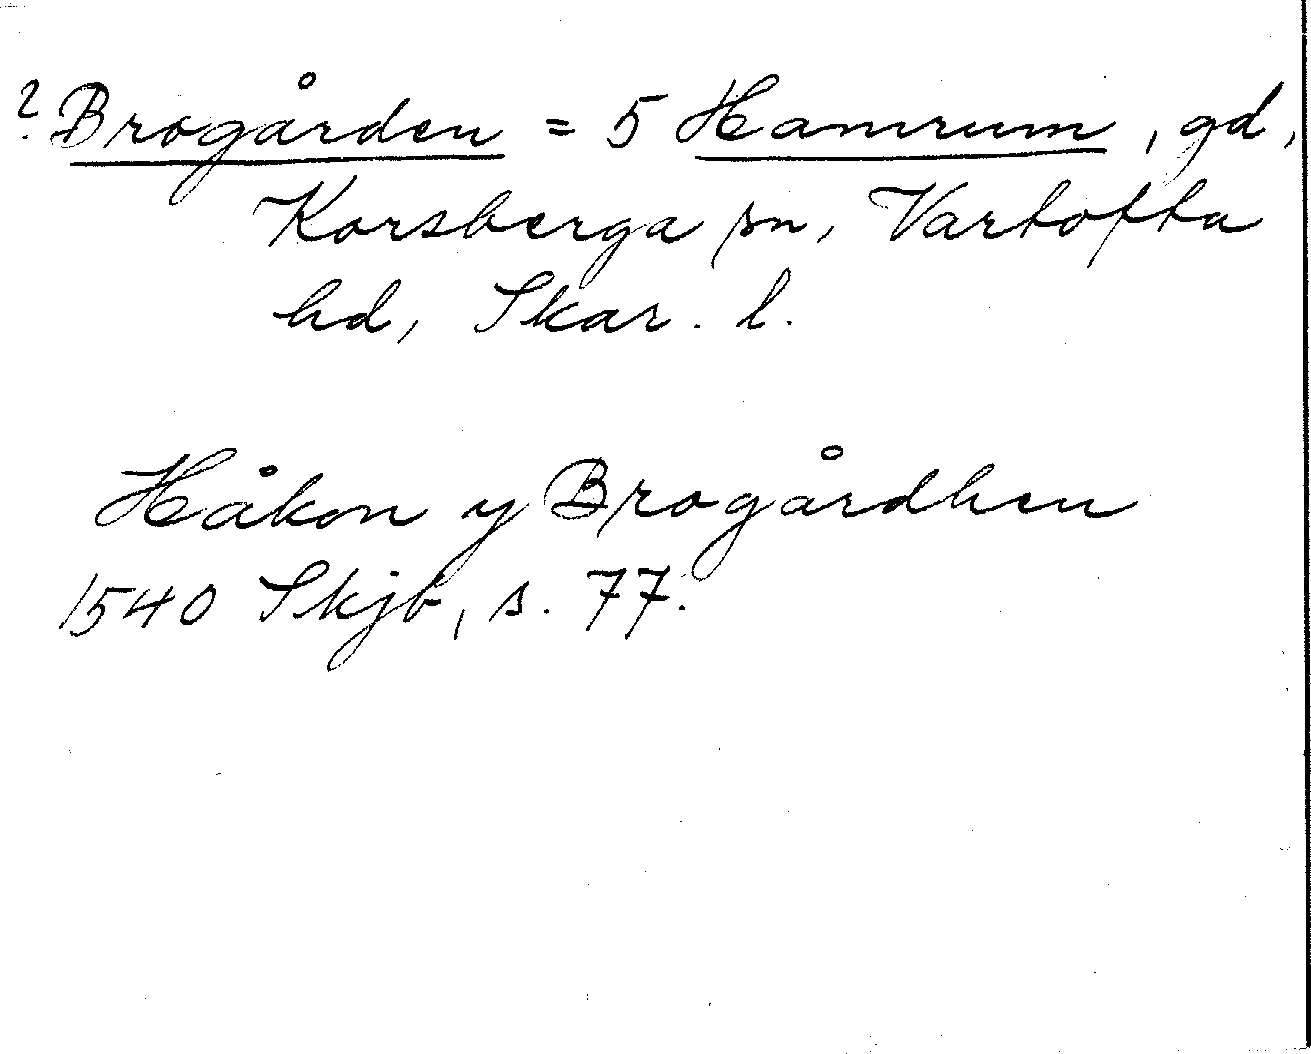 ? Brogården = 5 Hamrum, gd,
Korsberga sn, Vartofta
hd, Skar. l.
Håkon y Brogårdhen
1540 Skjb, s. 77.